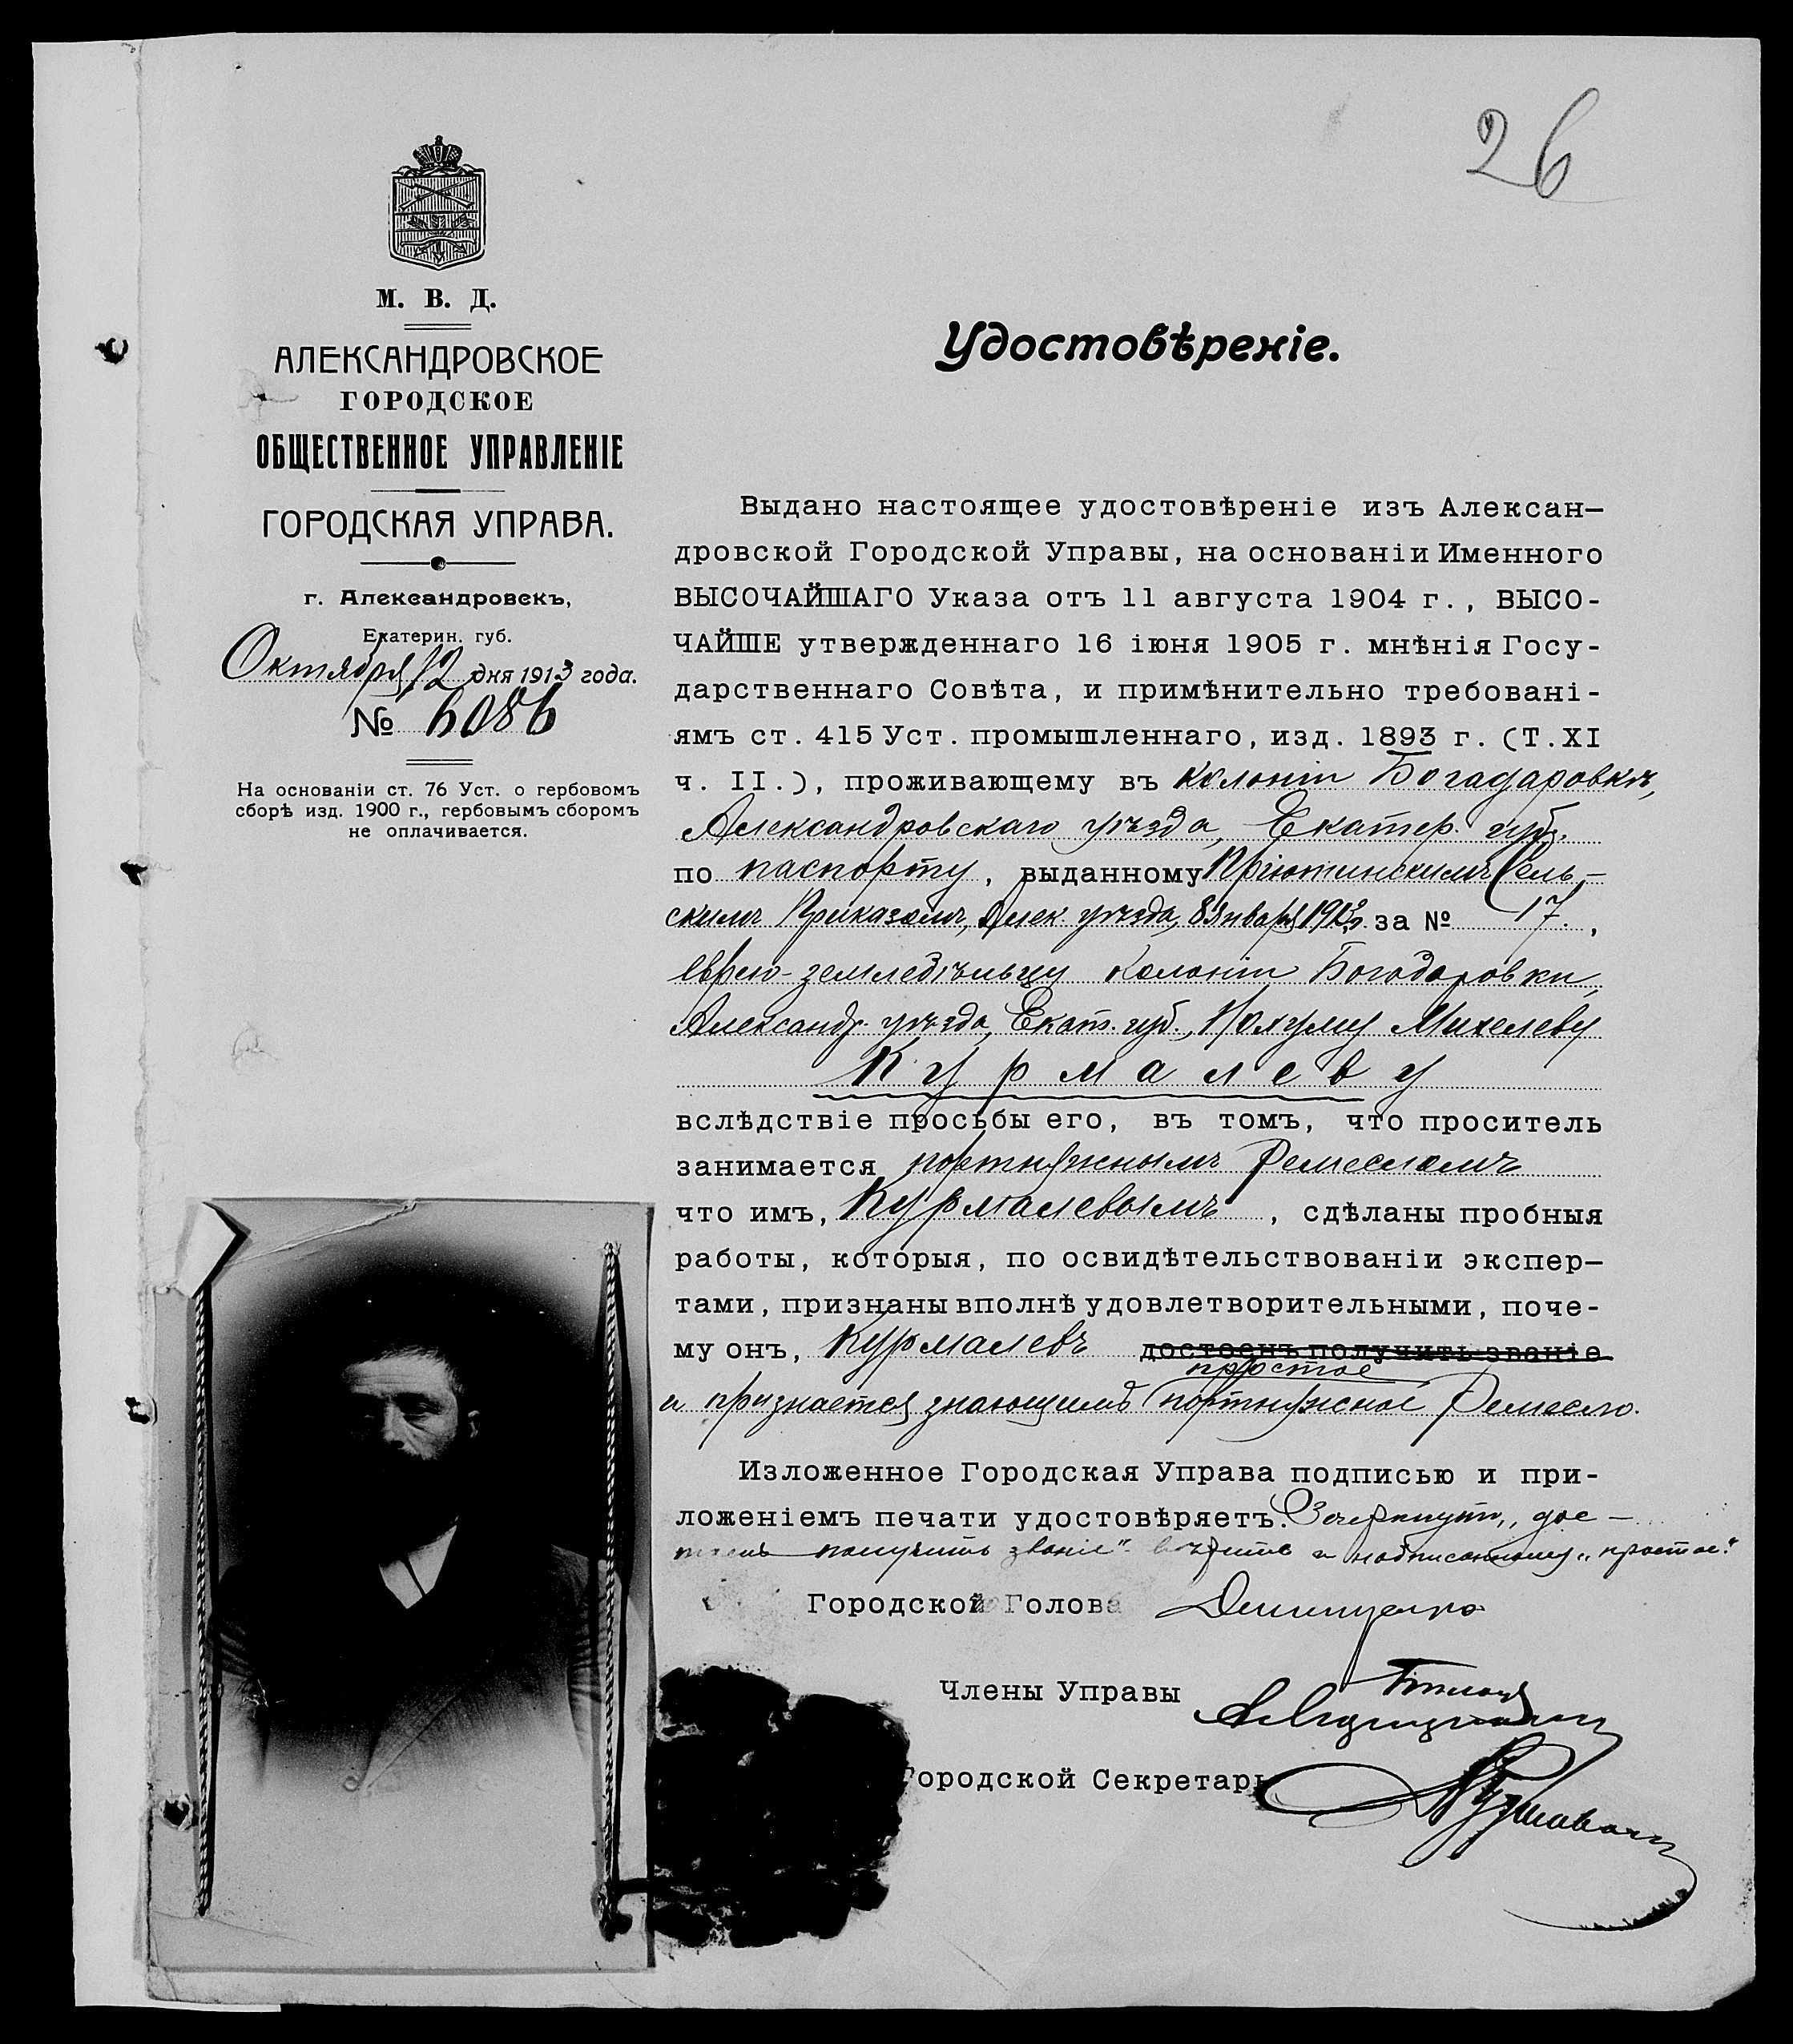 26
М. В. Д.
АЛЕКСАНДРОВСКОЕ
ГОРОДСКОЕ
ОБЩЕСТВЕННОЕ УПРАВЛЕНІЕ
ГОРОДСКАЯ УПРАВА.
г. Александровскъ,
Екатерин. губ.
Октября 12 дня 1913 года.
№ 6086
На основаніи ст. 76 Уст. о гербовомъ
сборѣ изд. 1900 г., гербовымъ сборомъ
не оплачивается.
Удостовѣреніе.
Выдано настоящее удостовѣреніе изъ Алексан-
дровской Городской Управы, на основаніи Именного
ВЫСОЧАЙШАГО Указа отъ 11 августа 1904 г., ВЫСО-
ЧАЙШЕ утвержденнаго 16 іюня 1905 г. мнѣнія Госу-
дарственнаго Совѣта, и примѣнительно требовані-
ямъ ст. 415 Уст. промышленнаго, изд. 1893 г. (Т. XI
ч. II.), проживающему въ колоніи Богадаровкѣ,
Александровскаго уѣзда, Екатер. губ.
по паспорту, выданному Пріютинскимъ Сель-
скимъ Приказомъ, Алек. уѣзда, 8 Января за № 17.,
еврею-земледѣльцу колоніи Богодаровки,
Александр. уѣзда, Екат. губ., Нохуму Михелеву
Курмалеву
вслѣдствіе просьбы его, въ томъ, что проситель
занимается портняжнымъ ремесломъ
что имъ, Курмалевымъ, сдѣланы пробныя
работы, которыя, по освидѣтельствованіи экспер-
тами, признаны вполнѣ удовлетворительными, поче-
му онъ, Курмалевъ достоенъ получить званіе
простое
и признается знающимъ портняжное ремесло.
Изложенное Городская Управа подписью и при-
ложеніемъ печати удостовѣряетъ. Зачеркнут. „дос-
тоенъ получить званіе" и надписанному „простое."
Городской Голова
Члены Управы
Городской Секретарь